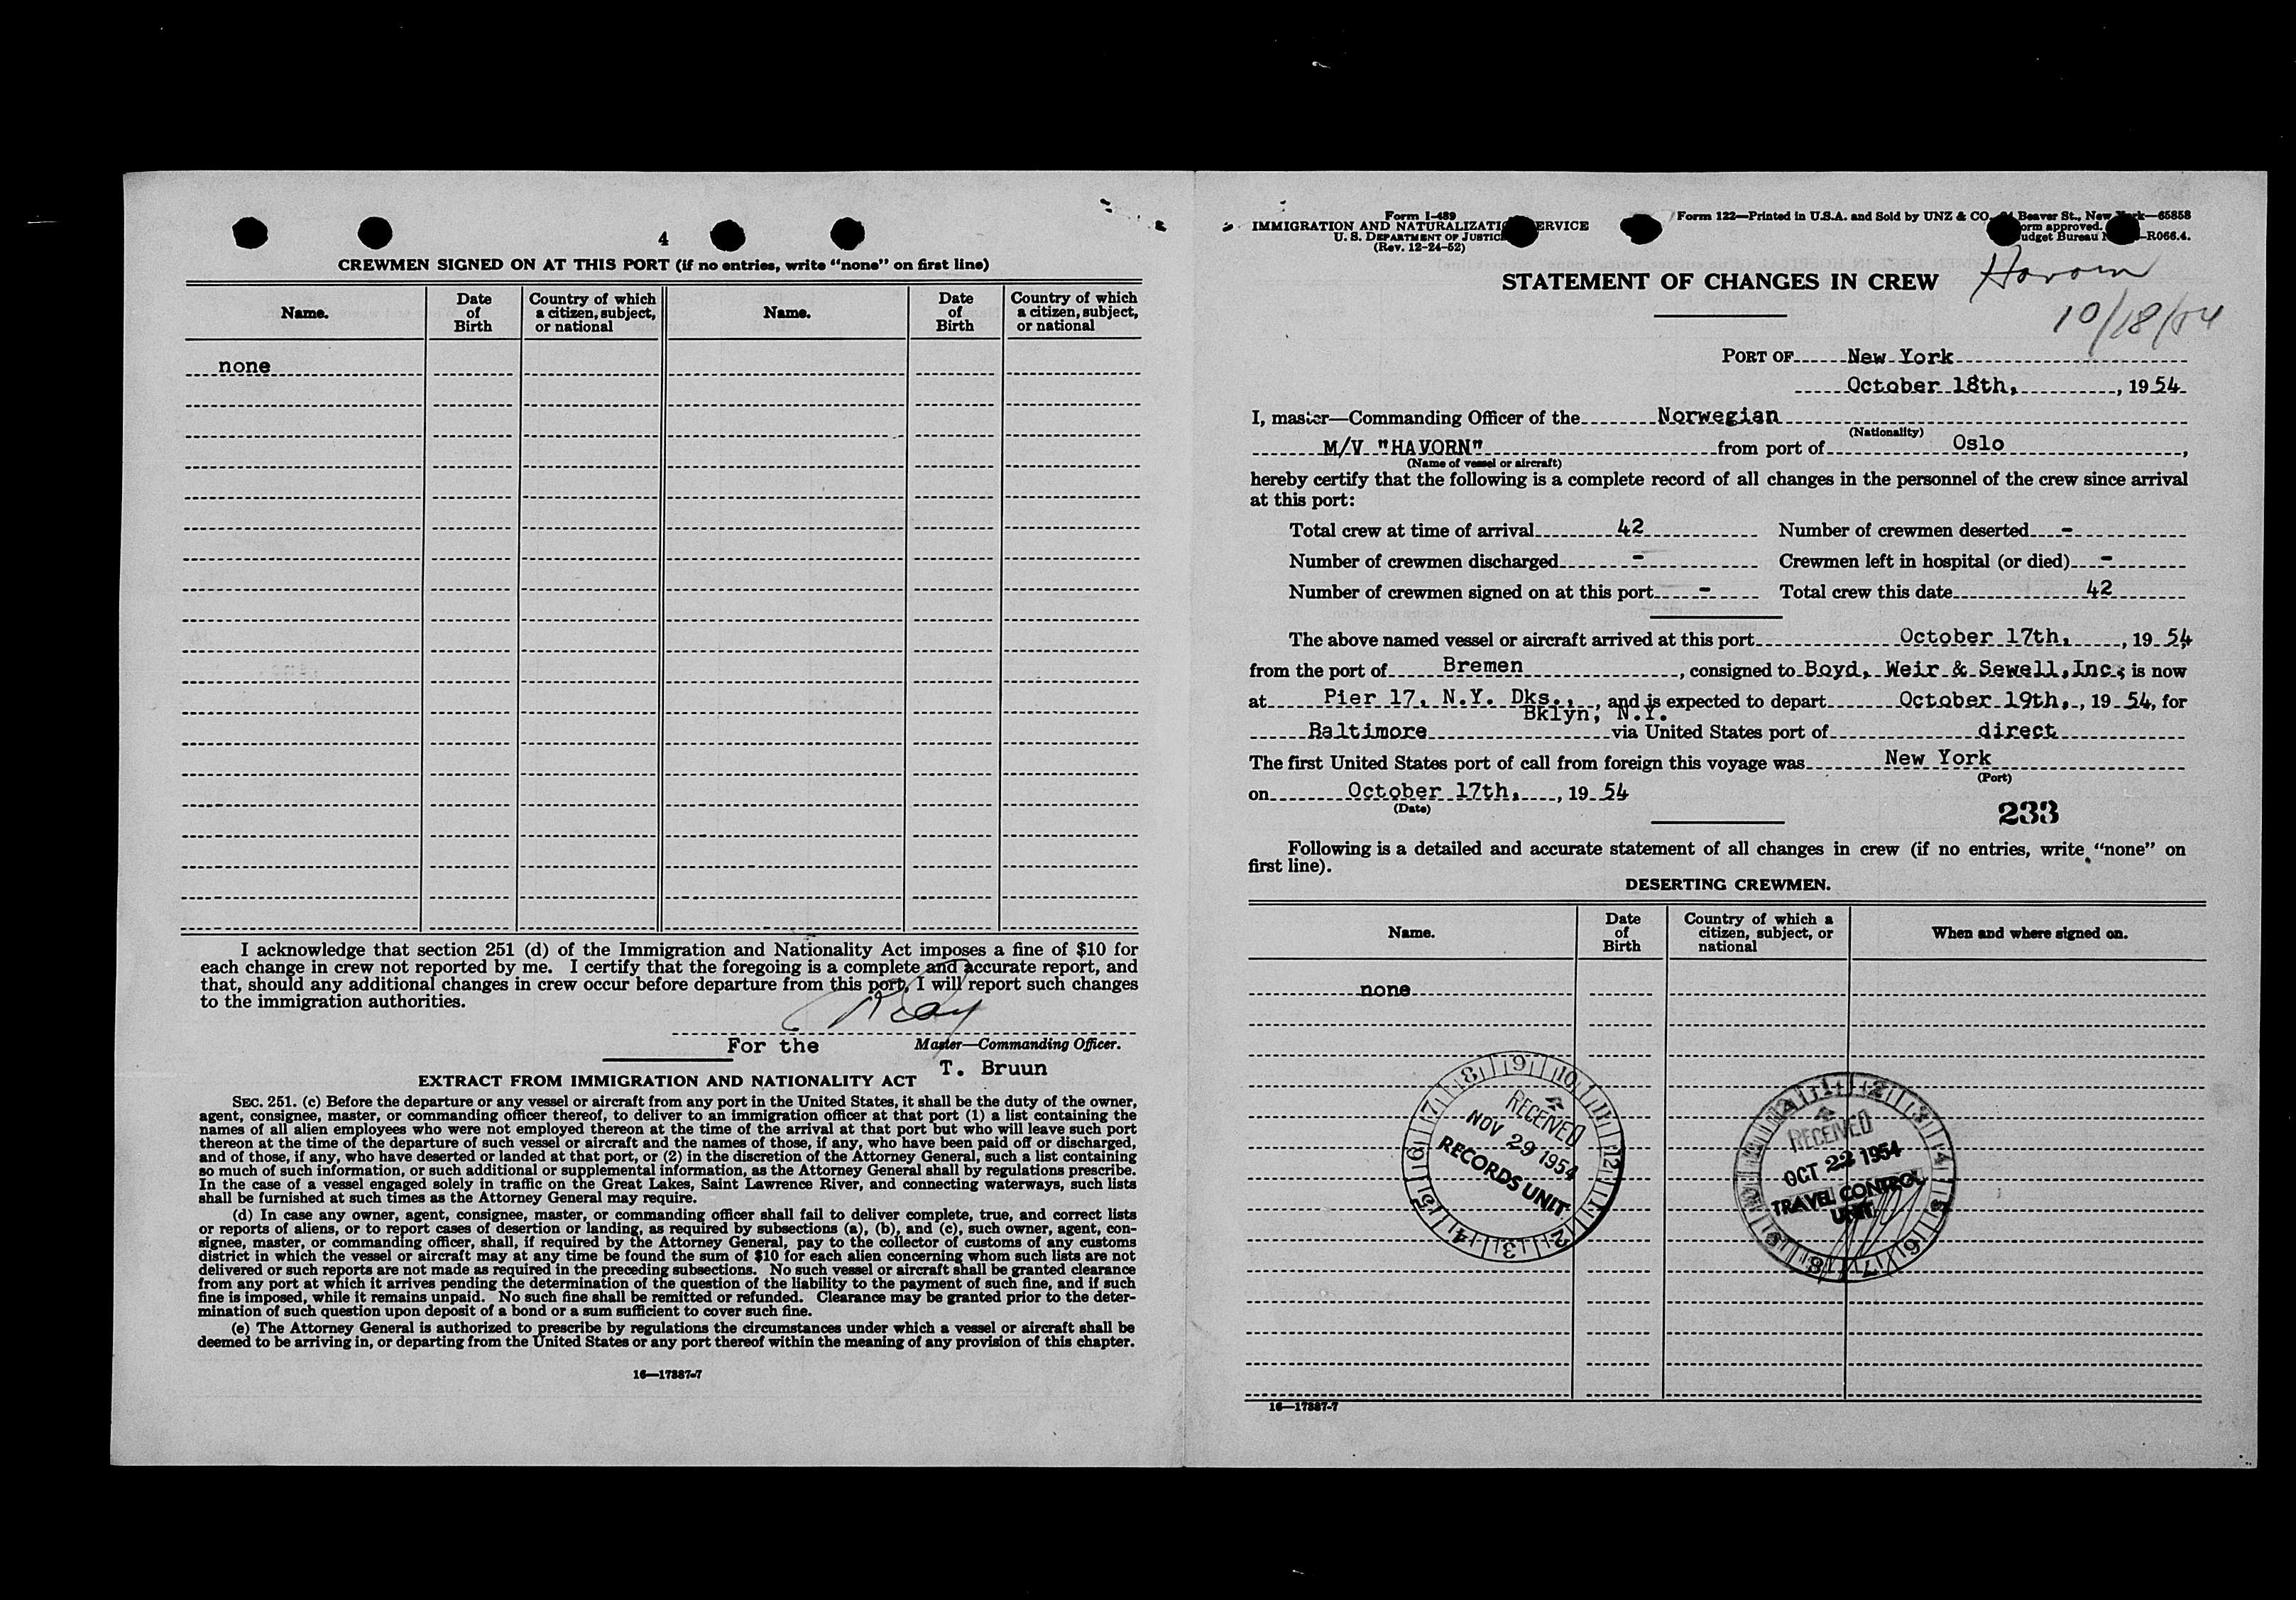 4
CREWMEN SIGNED ON AT THIS PORT (if no entries, write "none" on first line)
Name.
Date of Birth
Country of which a citizen, subject, or national
Name.
Date of Birth
Country of which a citizen, subject, or national
none
I acknowledge that section 251 (d) of the Immigration and Nationality Act imposes a fine of $10 for
each change in crew not reported by me. I certify that the foregoing is a complete and accurate report, and
that, should any additional changes in crew occur before departure from this port, I will report such changes
to the immigration authorities.
For the Master—Commanding Officer.
T. Bruun
EXTRACT FROM IMMIGRATION AND NATIONALITY ACT
SEC. 251. (c) Before the departure or any vessel or aircraft from any port in the United States, it shall be the duty of the owner,
agent, consignee, master, or commanding officer thereof, to deliver to an immigration officer at that port (1) a list containing the
names of all alien employees who were not employed thereon at the time of the arrival at that port but who will leave such port
thereon at the time of the departure of such vessel or aircraft and the names of those, if any, who have been paid off or discharged,
and of those, if any, who have deserted or landed at that port, or (2) in the discretion of the Attorney General, such a list containing
so much of such information, or such additional or supplemental information, as the Attorney General shall by regulations prescribe.
In the case of a vessel engaged solely in traffic on the Great Lakes, Saint Lawrence River, and connecting waterways, such lists
shall be furnished at such times as the Attorney General may require.
(d) In case any owner, agent, consignee, master, or commanding officer shall fail to deliver complete, true, and correct lists
or reports of aliens, or to report cases of desertion or landing, as required by subsections (a), (b), and (c), such owner, agent, con-
signee, master, or commanding officer, shall, if required by the Attorney General, pay to the collector of customs of any customs
district in which the vessel or aircraft may at any time be found the sum of $10 for each alien concerning whom such lists are not
delivered or such reports are not made as required in the preceding subsections. No such vessel or aircraft shall be granted clearance
from any port at which it arrives pending the determination of the question of the liability to the payment of such fine, and if such
fine is imposed, while it remains unpaid. No such fine shall be remitted or refunded. Clearance may be granted prior to the deter-
mination of such question upon deposit of a bond or a sum sufficient to cover such fine.
(e) The Attorney General is authorized to prescribe by regulations the circumstances under which a vessel or aircraft shall be
deemed to be arriving in, or departing from the United States or any port thereof within the meaning of any provision of this chapter.
16—17887-7
Form I-489
IMMIGRATION AND NATURALIZATION SERVICE
U. S. DEPARTMENT OF JUSTICE
(Rev. 12-24-52)
Form 122—Printed in U.S.A. and Sold by UNZ & CO. Beaver St., New York—65858
Form approved.
Budget Bureau -R066.4.
STATEMENT OF CHANGES IN CREW
Havorn
10/18/54
PORT OF New York
October 18th, , 19 54
I, master—Commanding Officer of the Norwegian
(Nationality)
M/V "HAVORN" from port of Oslo ,
(Name of vessel or aircraft)
hereby certify that the following is a complete record of all changes in the personnel of the crew since arrival
at this port:
Total crew at time of arrival 42 Number of crewmen deserted -
Number of crewmen discharged - Crewmen left in hospital (or died) -
Number of crewmen signed on at this port - Total crew this date 42
The above named vessel or aircraft arrived at this port October 17th, , 19 54
from the port of Bremen , consigned to Boyd, Weir & Sewell, Inc; is now
at Pier 17, N.Y. Dks., , and is expected to depart October 19th, , 19 54, for
Bklyn, N.Y.
Baltimore via United States port of direct
The first United States port of call from foreign this voyage was New York
(Port)
on October 17th, , 19 54
(Date)
233
Following is a detailed and accurate statement of all changes in crew (if no entries, write "none" on
first line).
DESERTING CREWMEN.
Name.
Date of Birth
Country of which a citizen, subject, or national
When and where signed on.
none
RECEIVED
NOV 29 1954
RECORDS UNIT.
RECEIVED
OCT 22 1954
TRAVEL CONTROL
UNIT
16—17887-7